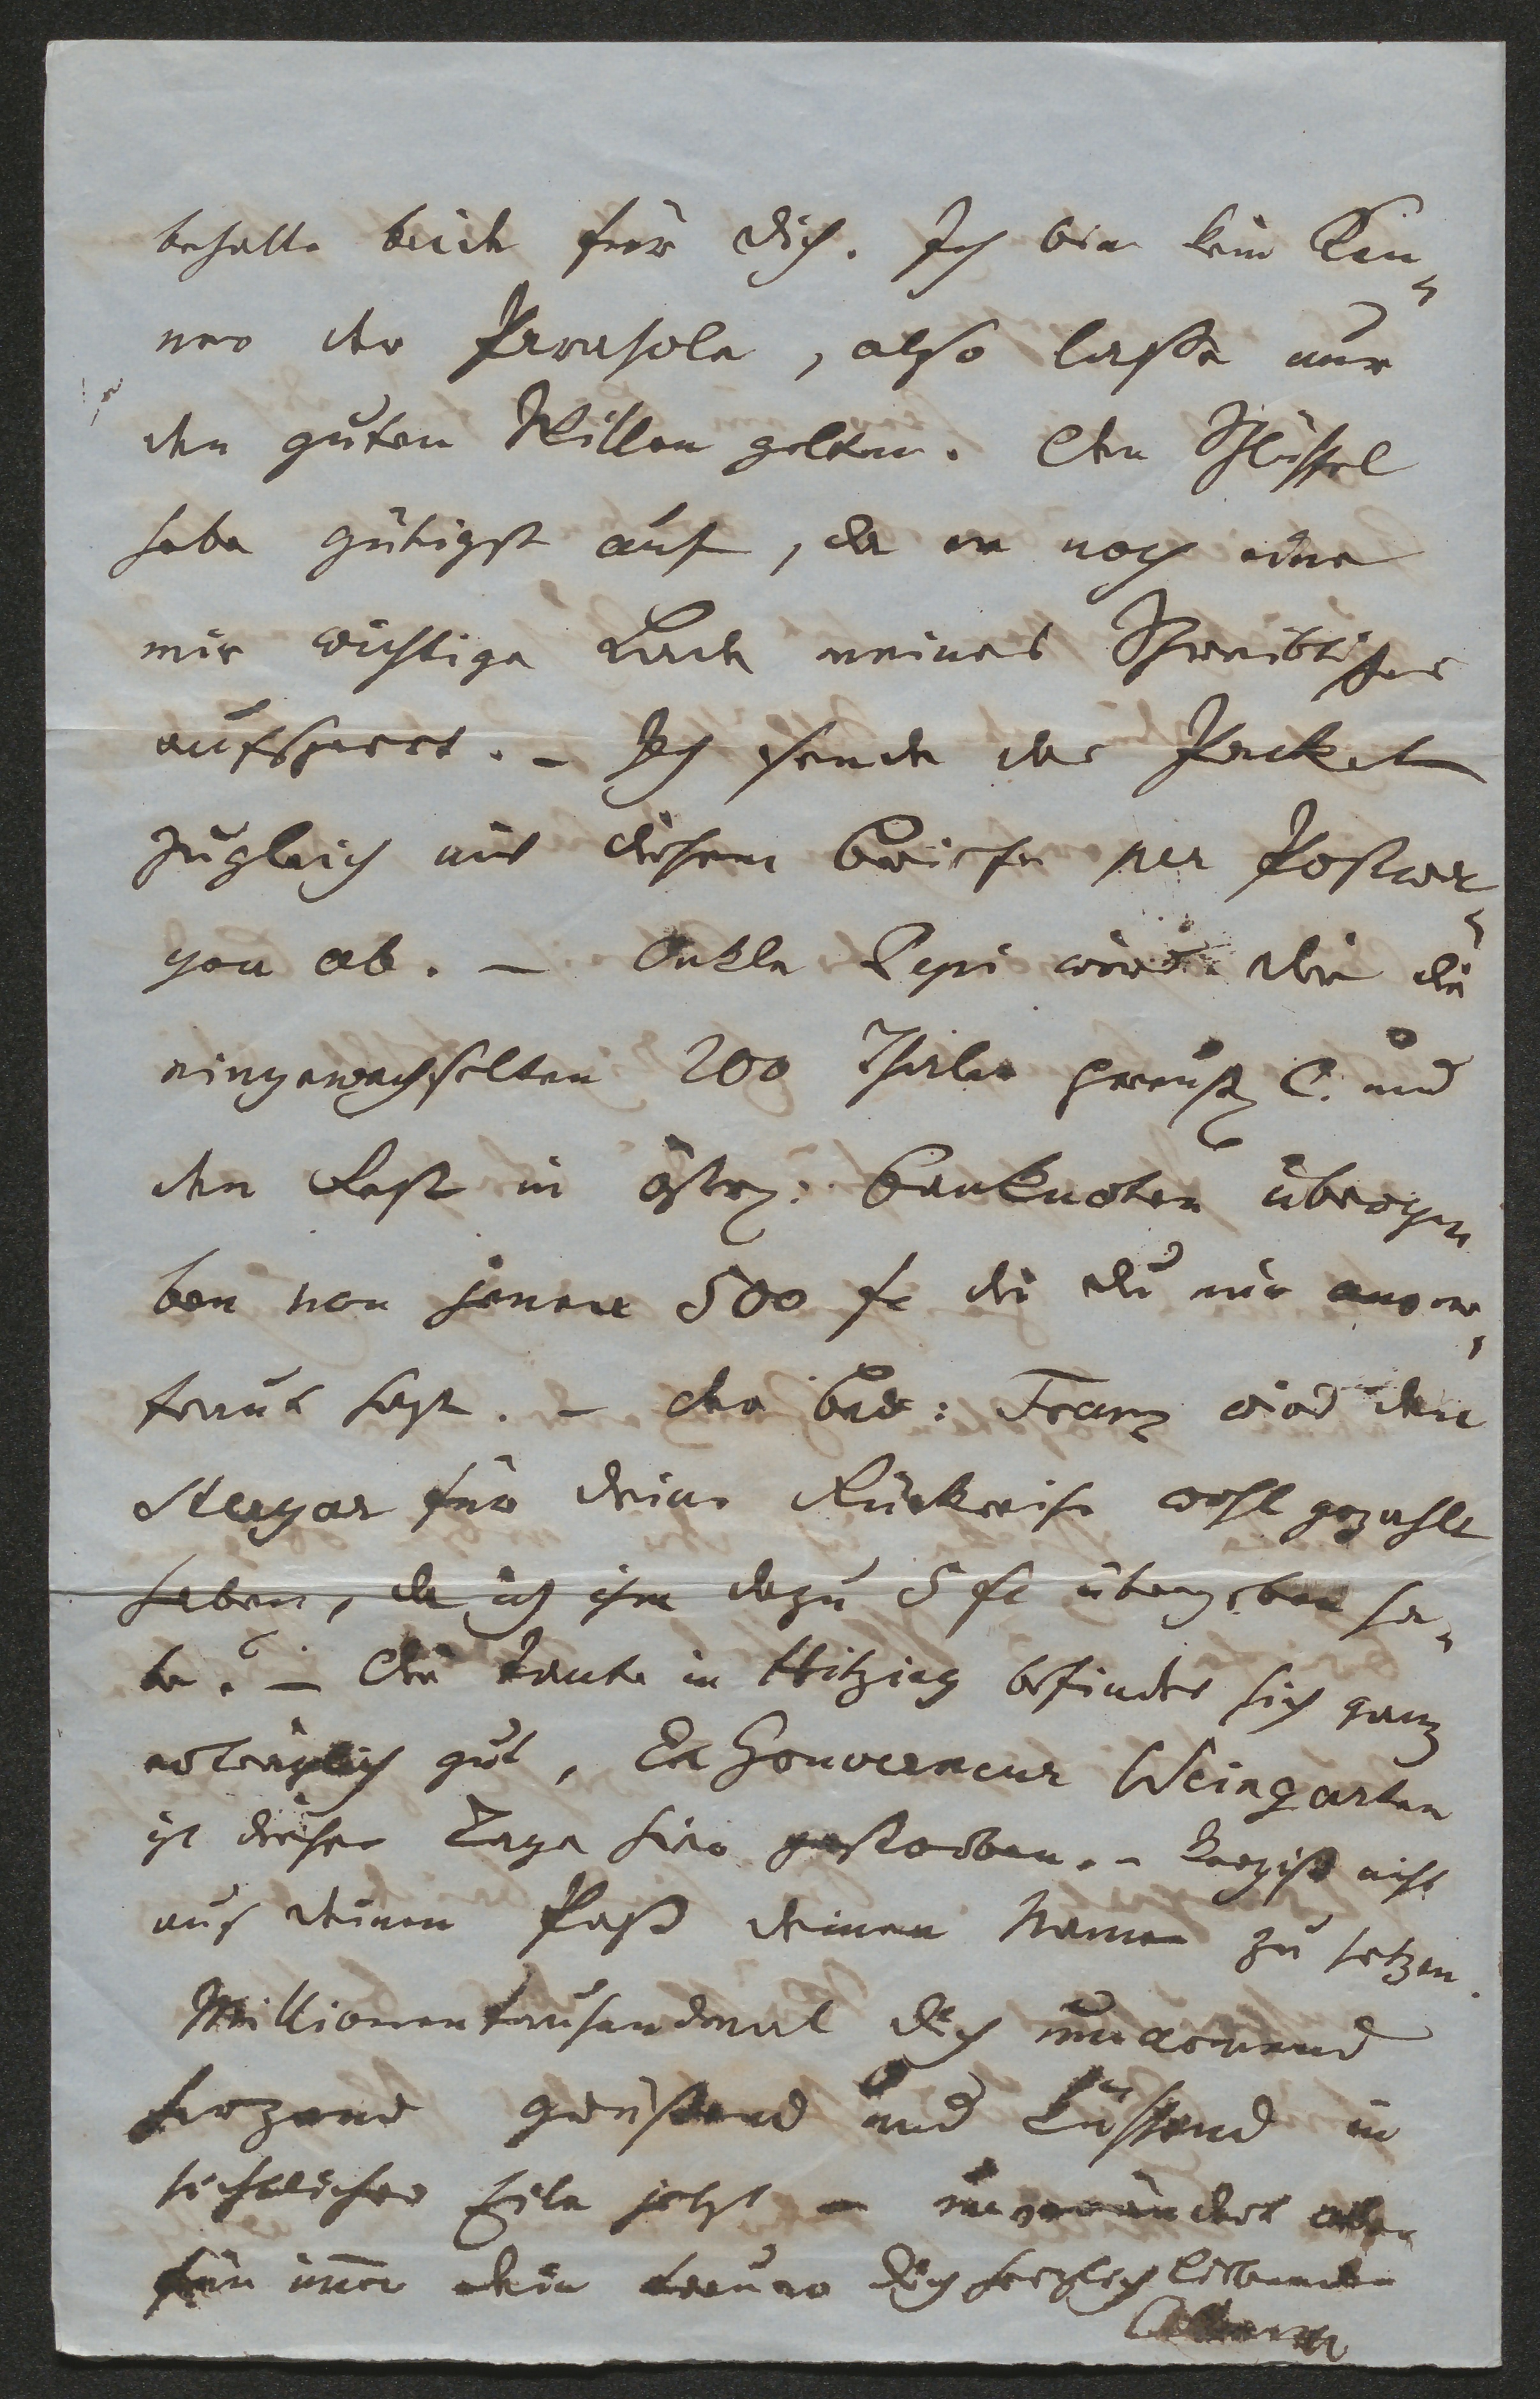 behalte beide für dich. Ich bin kein Ken„
ner der Parasole, also lasse nur
den guten Willen gelten. Den Schlüssel
hebe gütigst auf, da er noch eine
mir wichtige Lade meines Schreibtisches
aufsperrt. – Ich sende das Packet
zugleich mit diesem Briefe per Postwa„
gen ab. – Onkle Pepi wird dir die
eingewechselten 200 Thaler preuß C. und
den Rest in östr: Banknoten überge„
ben von jenen 500 fl die du mir anver„
traut hast. – der Bed: Franz wird dem
Steyrer für deine Rückreise wohl gezahlt
haben, da ich ihm dazu 5 fl übergeben ha„
be? – Die Tante in Hitzing befindet sich ganz
erträglich gut, Ex Gouverneur Weingarten
ist dieser Tage hier gestorben. – Vergiß nicht
auf deinen Paß deinen Namen zu setzen.
Millionentausendmal dich umarmend
herzend grüßend und küssend in
sichtlicher Eile jetzt – unverändert aber
für immer dein treuer dich herzlich liebender